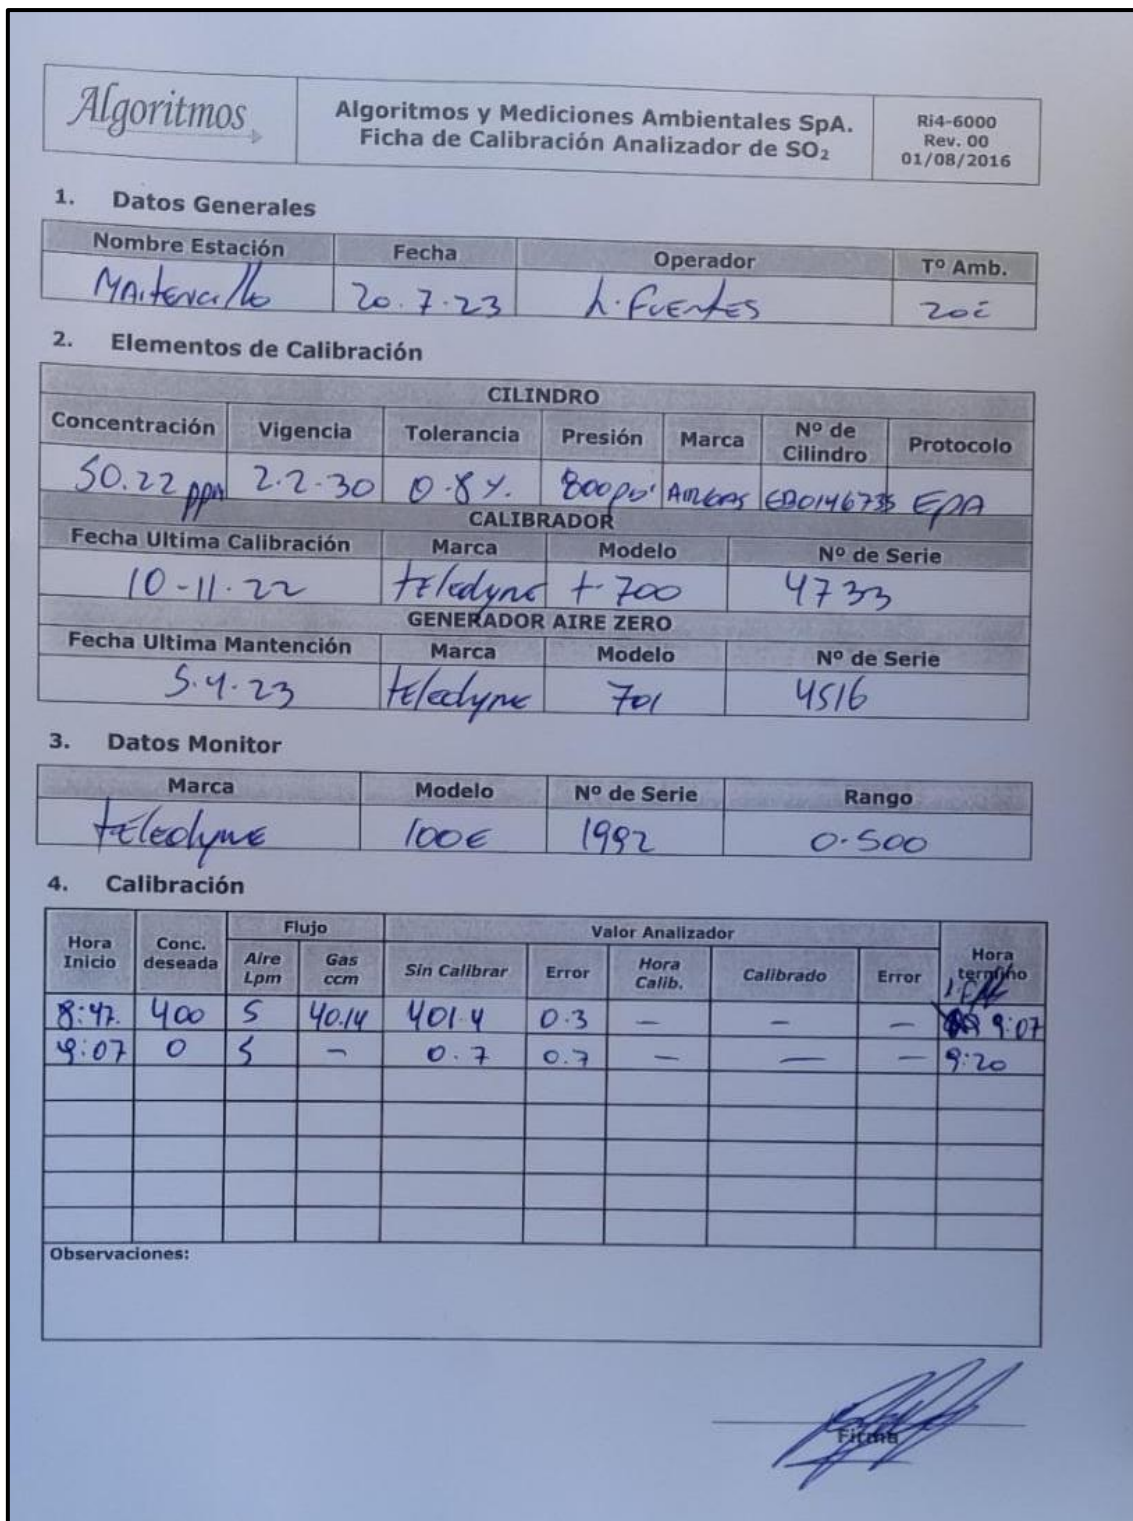 Algoritmos
Algoritmos y Mediciones Ambientales SpA.
Ficha de Calibración Analizador de SO₂
Ri4-6000
Rev. 00
01/08/2016
1. Datos Generales
Nombre Estación Fecha Operador Tº Amb.
MAitencillo 20.7.23 L. FUENTES 20c
2. Elementos de Calibración
CILINDRO
Concentración Vigencia Tolerancia Presión Marca Nº de Cilindro Protocolo
50.22 ppm 2.2.30 0.8 %. 800psi AIRGAS EB0146735 EPA
CALIBRADOR
Fecha Ultima Calibración Marca Modelo Nº de Serie
10-11.22 teledyne t-700 4733
GENERADOR AIRE ZERO
Fecha Ultima Mantención Marca Modelo Nº de Serie
5.4.23 teledyne 701 4516
3. Datos Monitor
Marca Modelo Nº de Serie Rango
teledyne 100E 1992 0-500
4. Calibración
Flujo Valor Analizador
Hora Inicio Conc. deseada Aire Lpm Gas ccm Sin Calibrar Error Hora Calib. Calibrado Error Hora termino
8:47. 400 5 40.14 401.4 0.3 — — — 9:07
9:07 0 5 — 0.7 0.7 — — — 9:20
Observaciones:
Firma